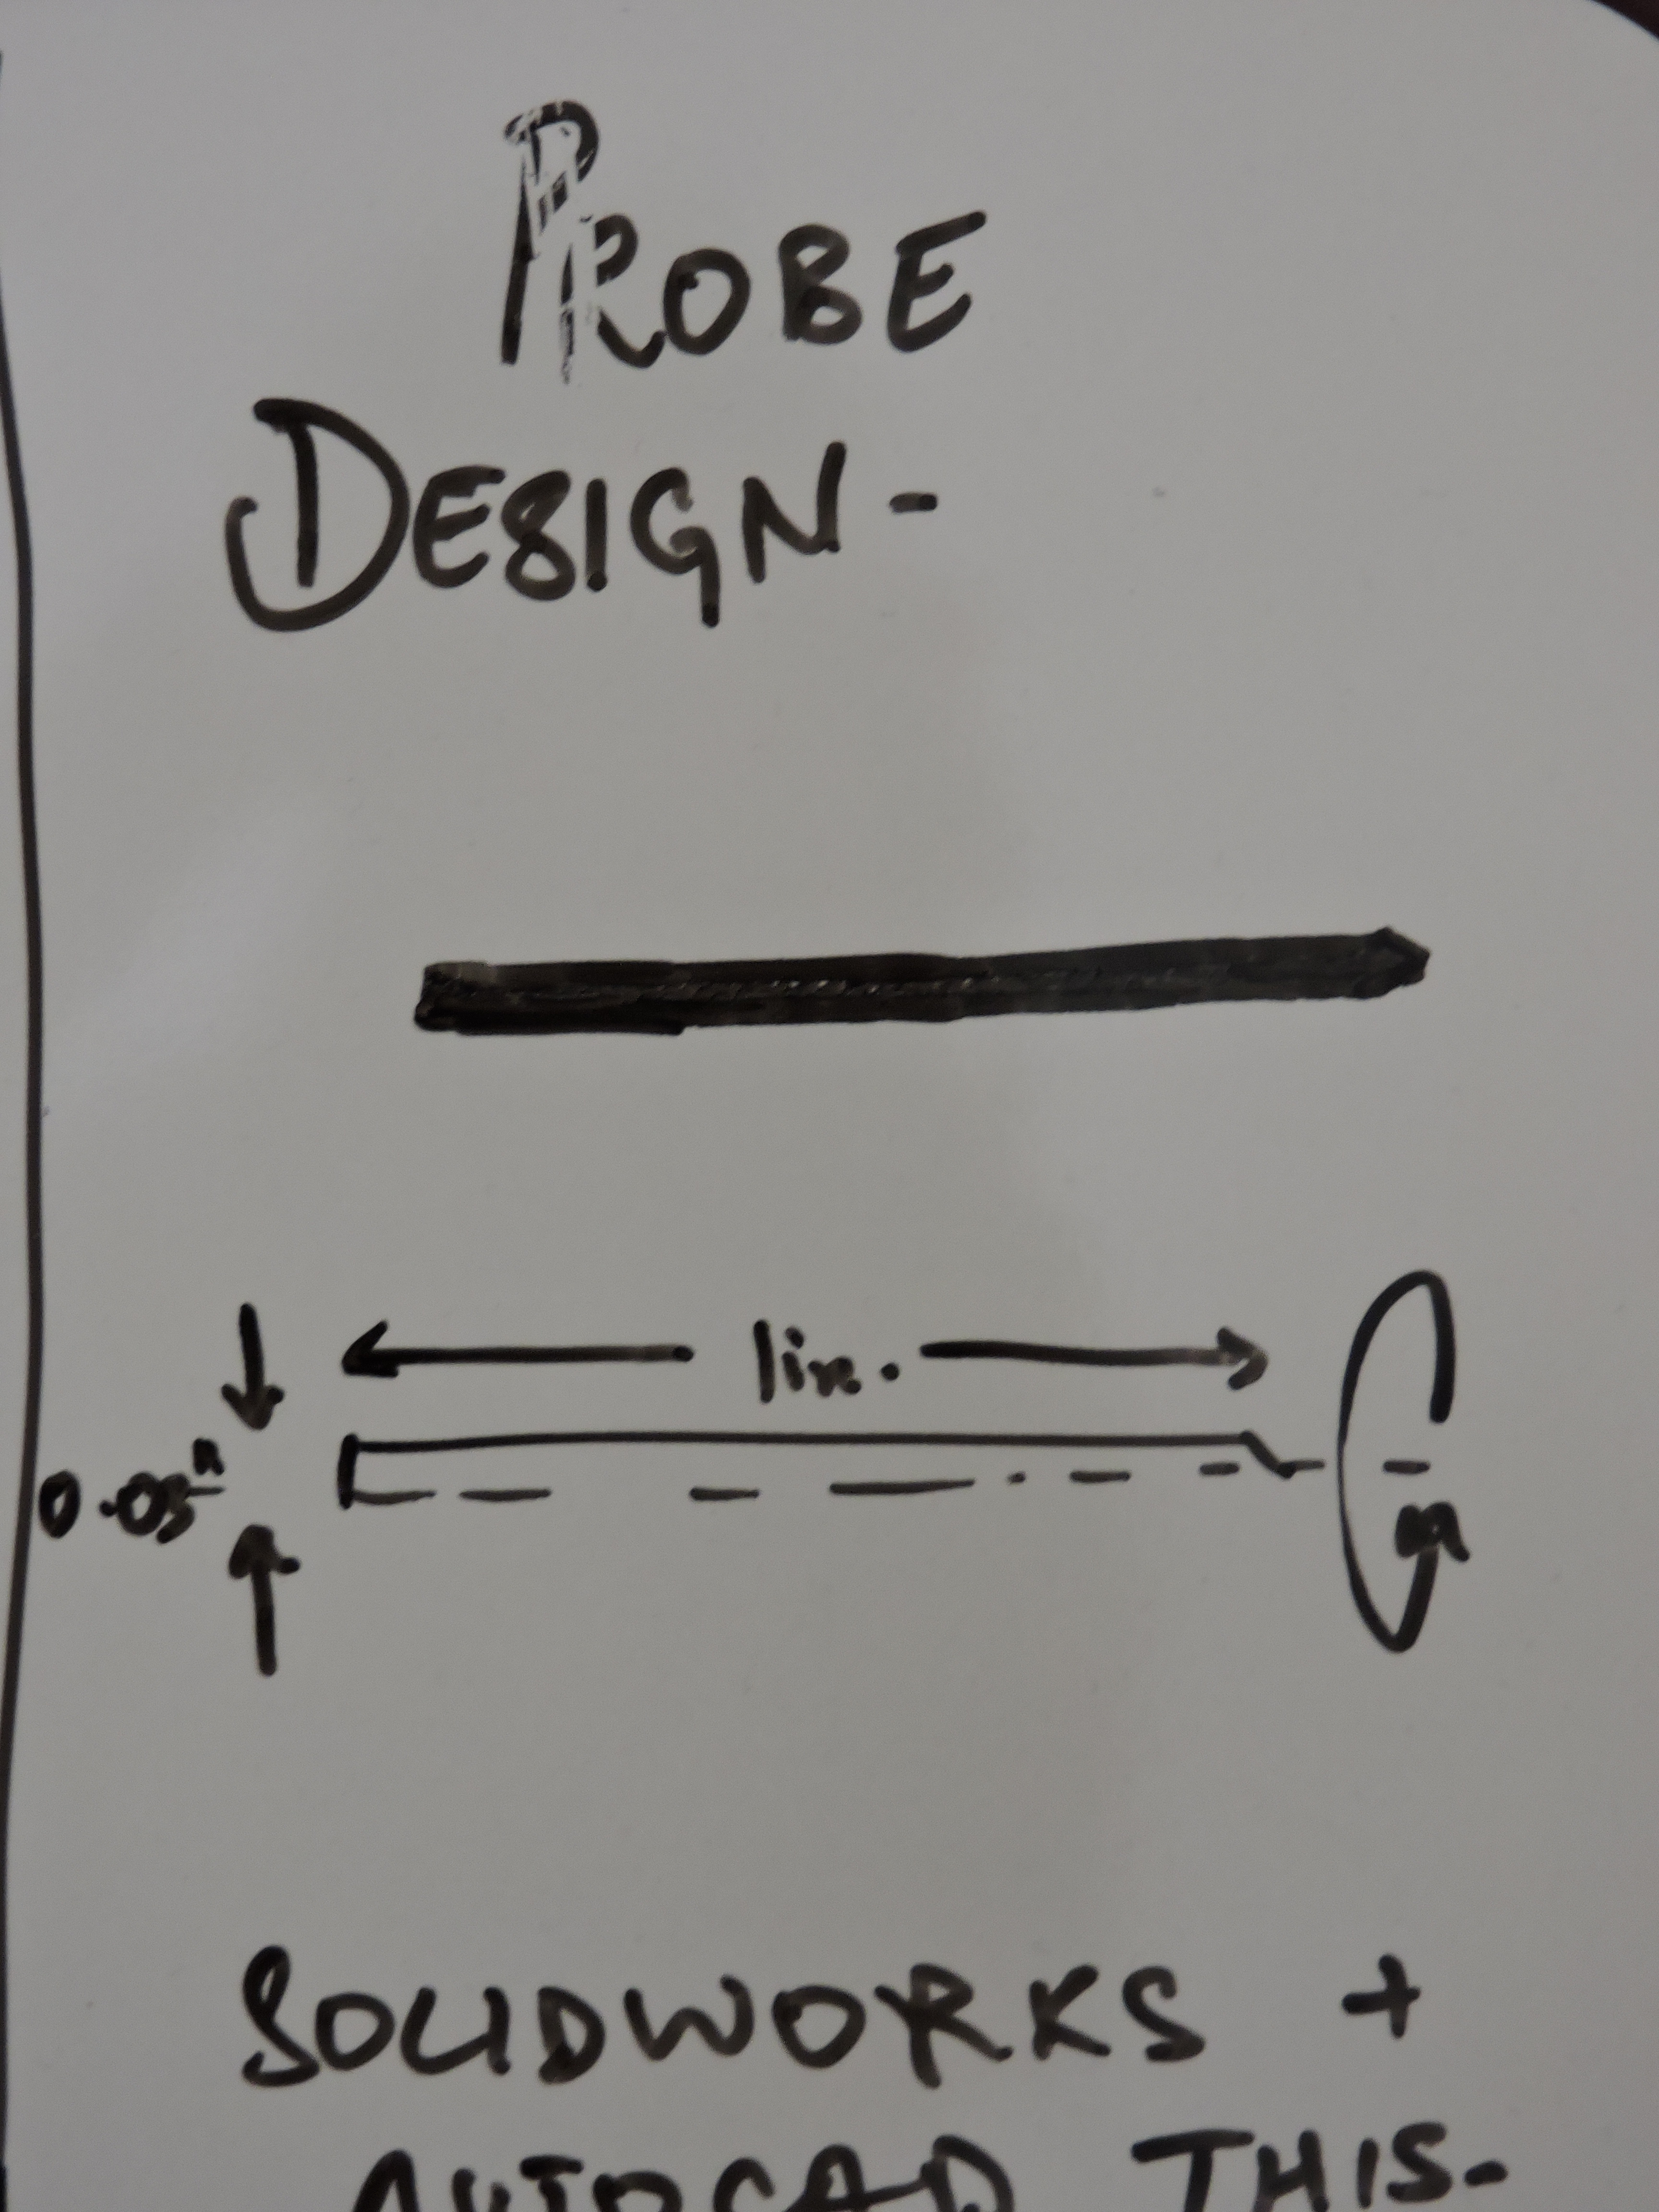 PROBE
DESIGN-
1in.
0.05"
SOLIDWORKS +
AUTOCAD THIS-